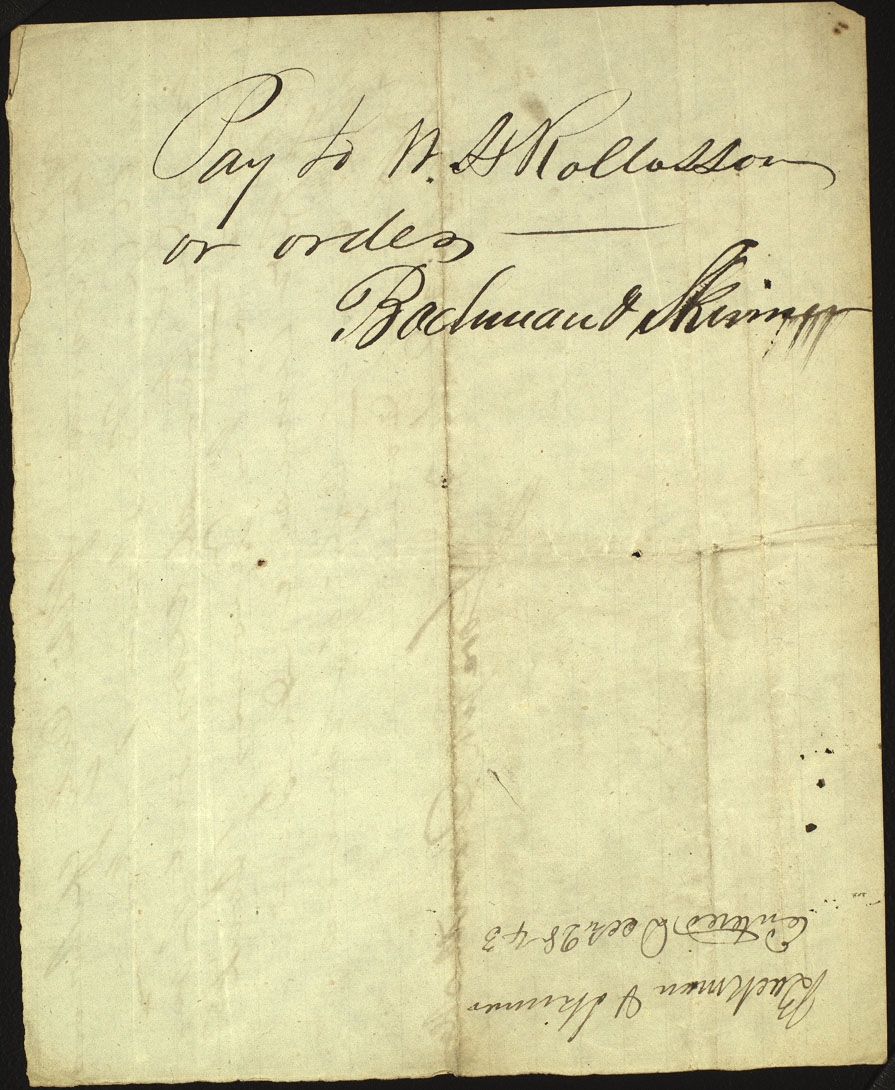 Pay to W. H Rollosson
or order
Bachman & Skinner
Bachman & Skinner
Entered Dec 28 43